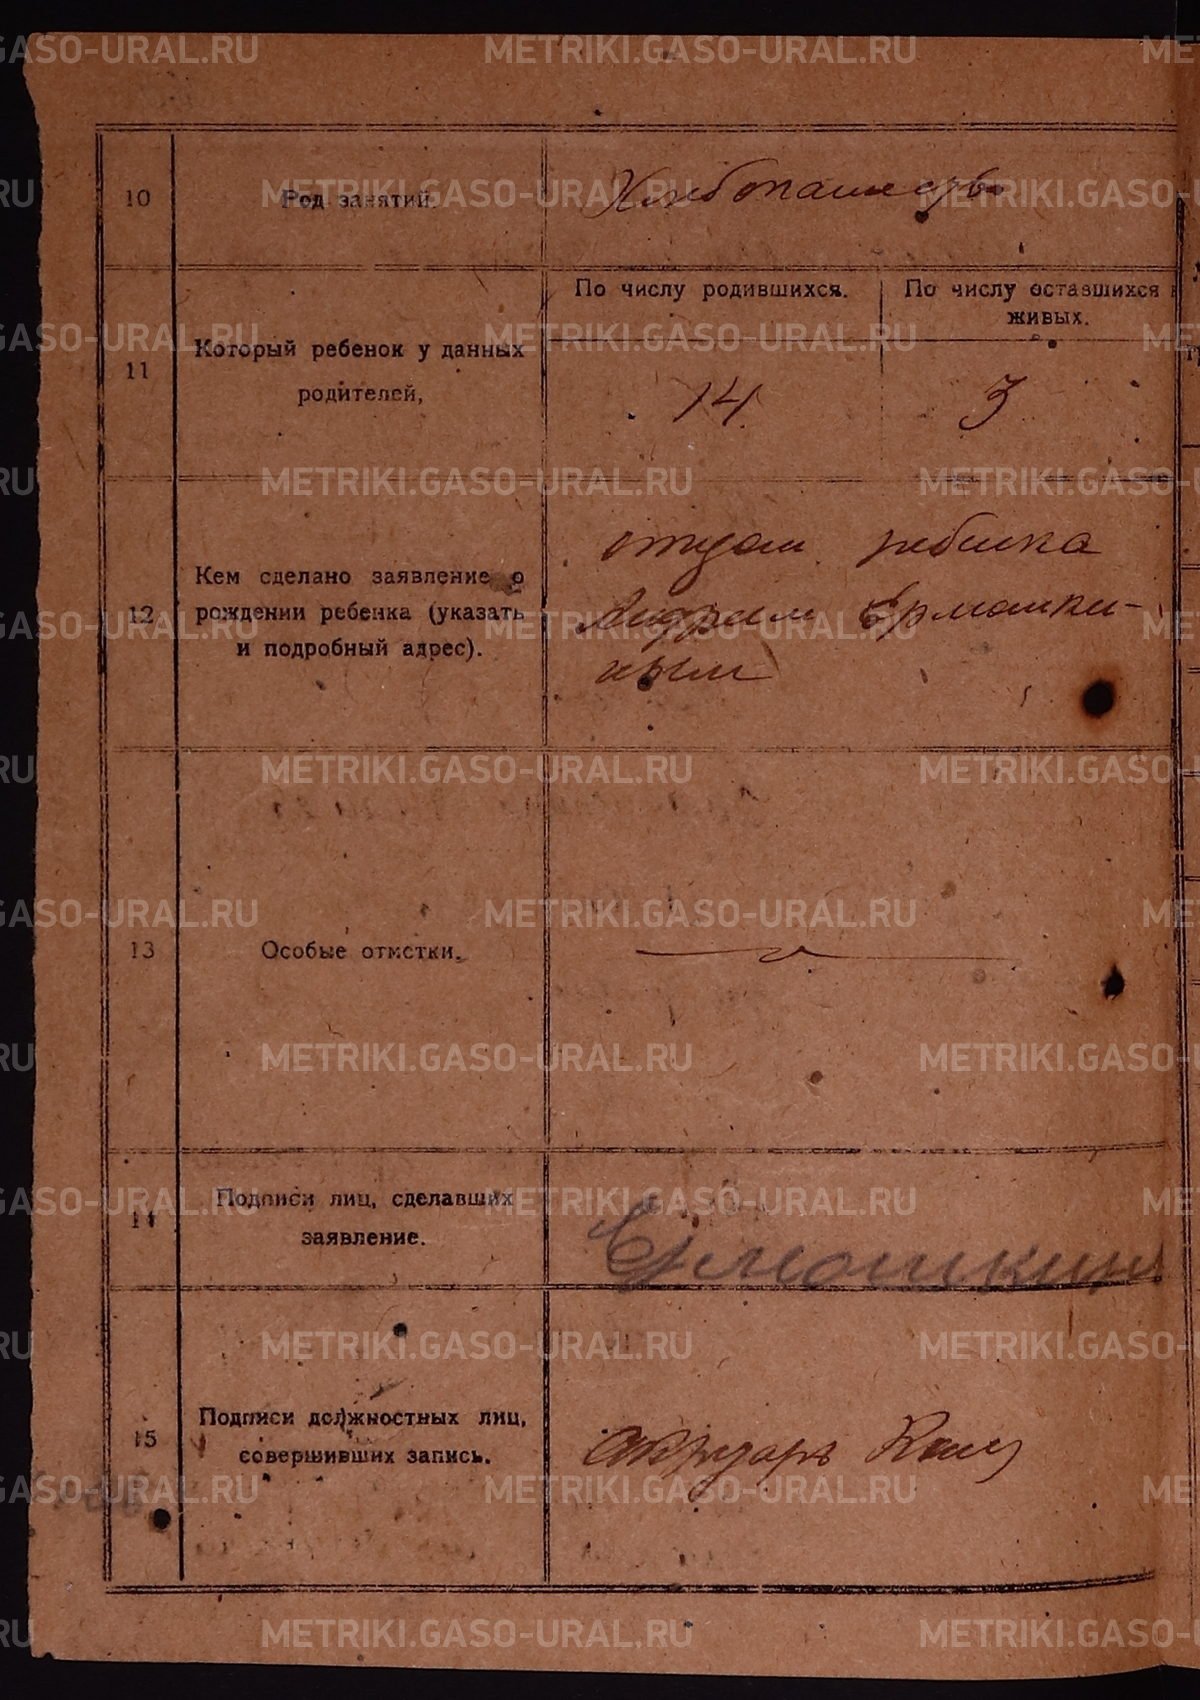 10
Род занятий.
Хлебопашеств
11
Который ребенок у данных
родителей,
По числу родившихся.
По числу оставшихся в
живых.
14
3
12
Кем сделано заявление о
рождении ребенка (указать
и подробный адрес).
отцом ребенка
Ермошки-
ным
13
Особые отметки.
14
Подписи лиц, сделавших
заявление.
Ермошкин
15
Подписи должностных лиц,
совершивших запись.
METRIKI.GASO-URAL.RU